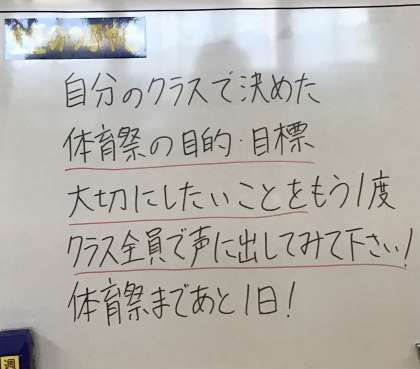 自分のクラスで決めた
体育祭の目的・目標
大切にしたいことをもう1度
クラス全員で声に出してみて下さい!
体育祭まであと1日!
週